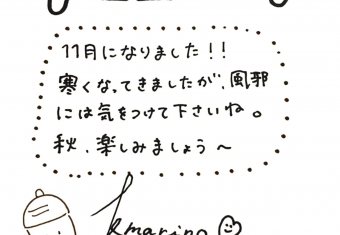 11月になりました!!
寒くなってきましたが、風邪
には気をつけて下さいね。
秋、楽しみましょう〜